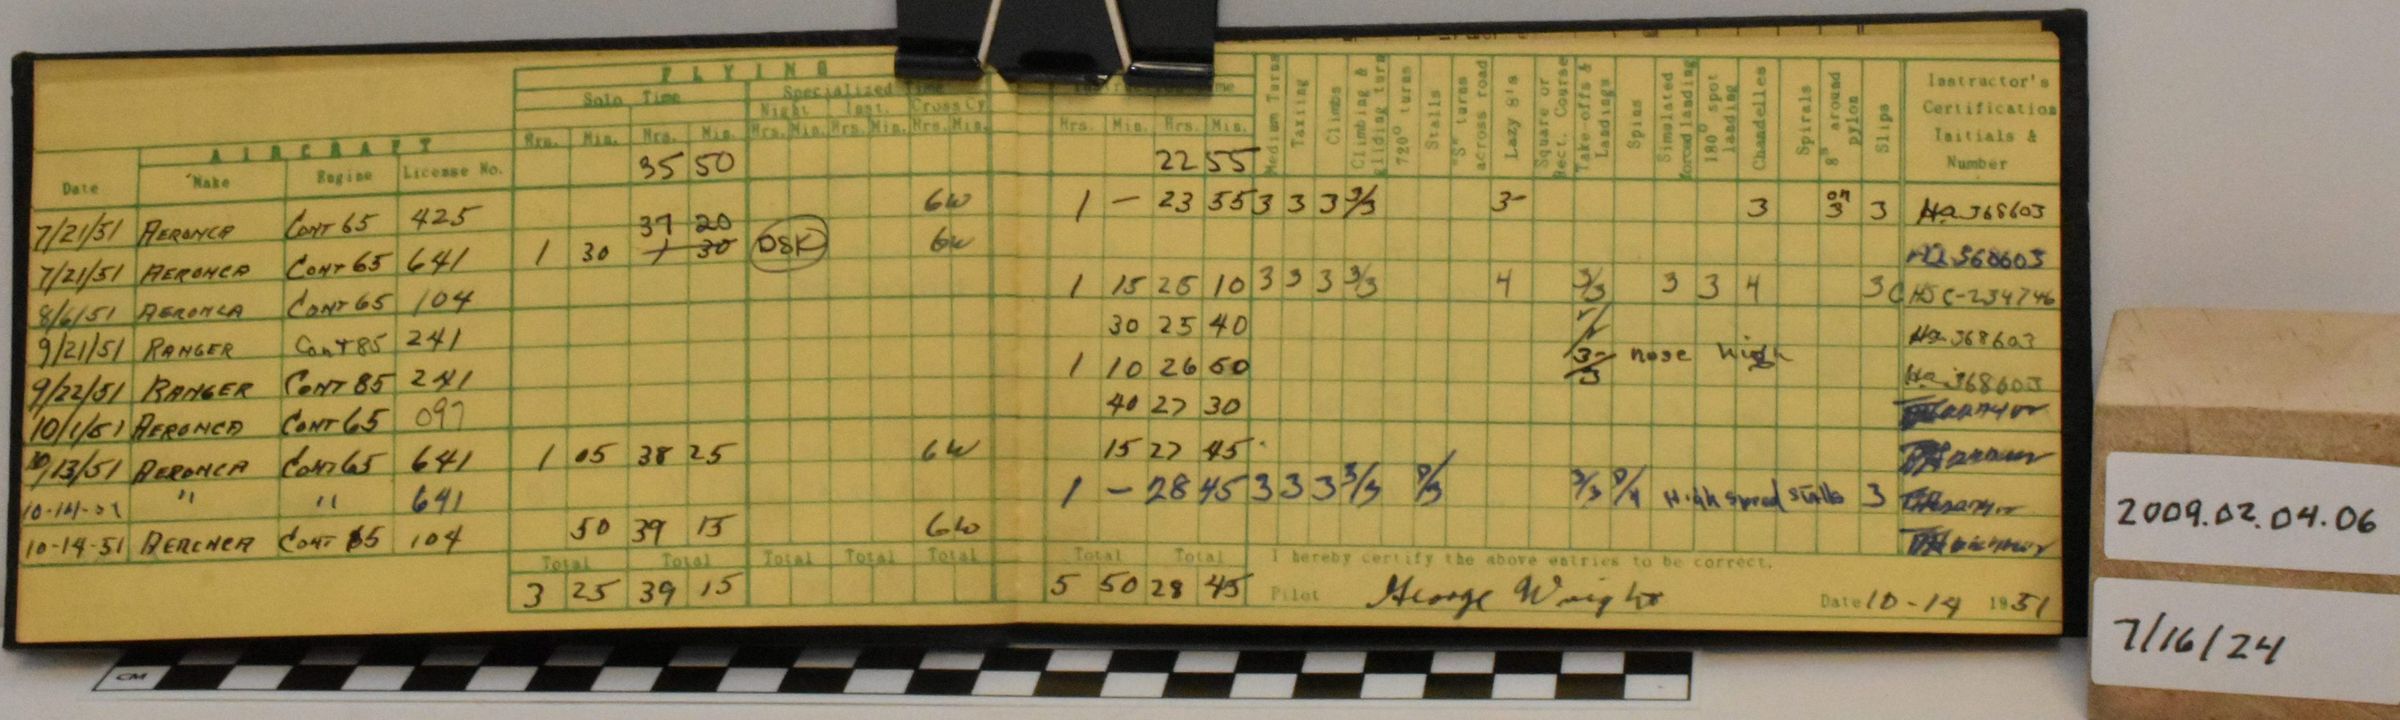 FLYING
Solo Time Specialized Time
Night Inst. Cross Cy
AIRCRAFT Hrs. Min. Hrs. Min. Hrs. Min. Hrs. Min. Hrs. Min. Hrs. Min. Hrs. Min.
Date Make Engine License No. 35 50 22 55
Medium Turns
Taxiing
Climbs
Climbing & gliding turn
720° turns
Stalls
"S" turns across road
Lazy 8's
Square or Rect. Course
Take-offs & Landings
Spins
Simulated forced landing
180° spot landing
Chandelles
Spirals
8s around pylon
Slips
Instructor's
Certification
Initials &
Number
7/21/51 AERONCA CONT 65 425 6W 1 - 23 55 3 3 3 3/3 3- 3 on 3 3 368603
7/21/51 AERONCA CONT 65 641 1 30 37 20 1 30 DSK 6W 368603
8/6/51 AERONCA CONT 65 104 1 15 25 10 3 3 3 3/3 4 3/3 3 3 4 3 C-234746
9/21/51 RANGER CONT 85 241 30 25 40 368603
9/22/51 RANGER CONT 85 241 1 10 26 50 3-/3 nose high 368603
10/1/51 AERONCA CONT 65 097 40 27 30
10/13/51 AERONCA CONT 65 641 1 05 38 25 6W 15 27 45
10-14-51 " " 641 1 - 28 45 3 3 3 3/3 3/3 High speed stalls 3
10-14-51 AERONCA CONT 65 104 50 39 15 6W
Total Total Total Total Total Total Total I hereby certify the above entries to be correct.
3 25 39 15 5 50 28 45 Pilot George Wright Date 10-14 1951
CM
2009.02.04.06
7/16/24